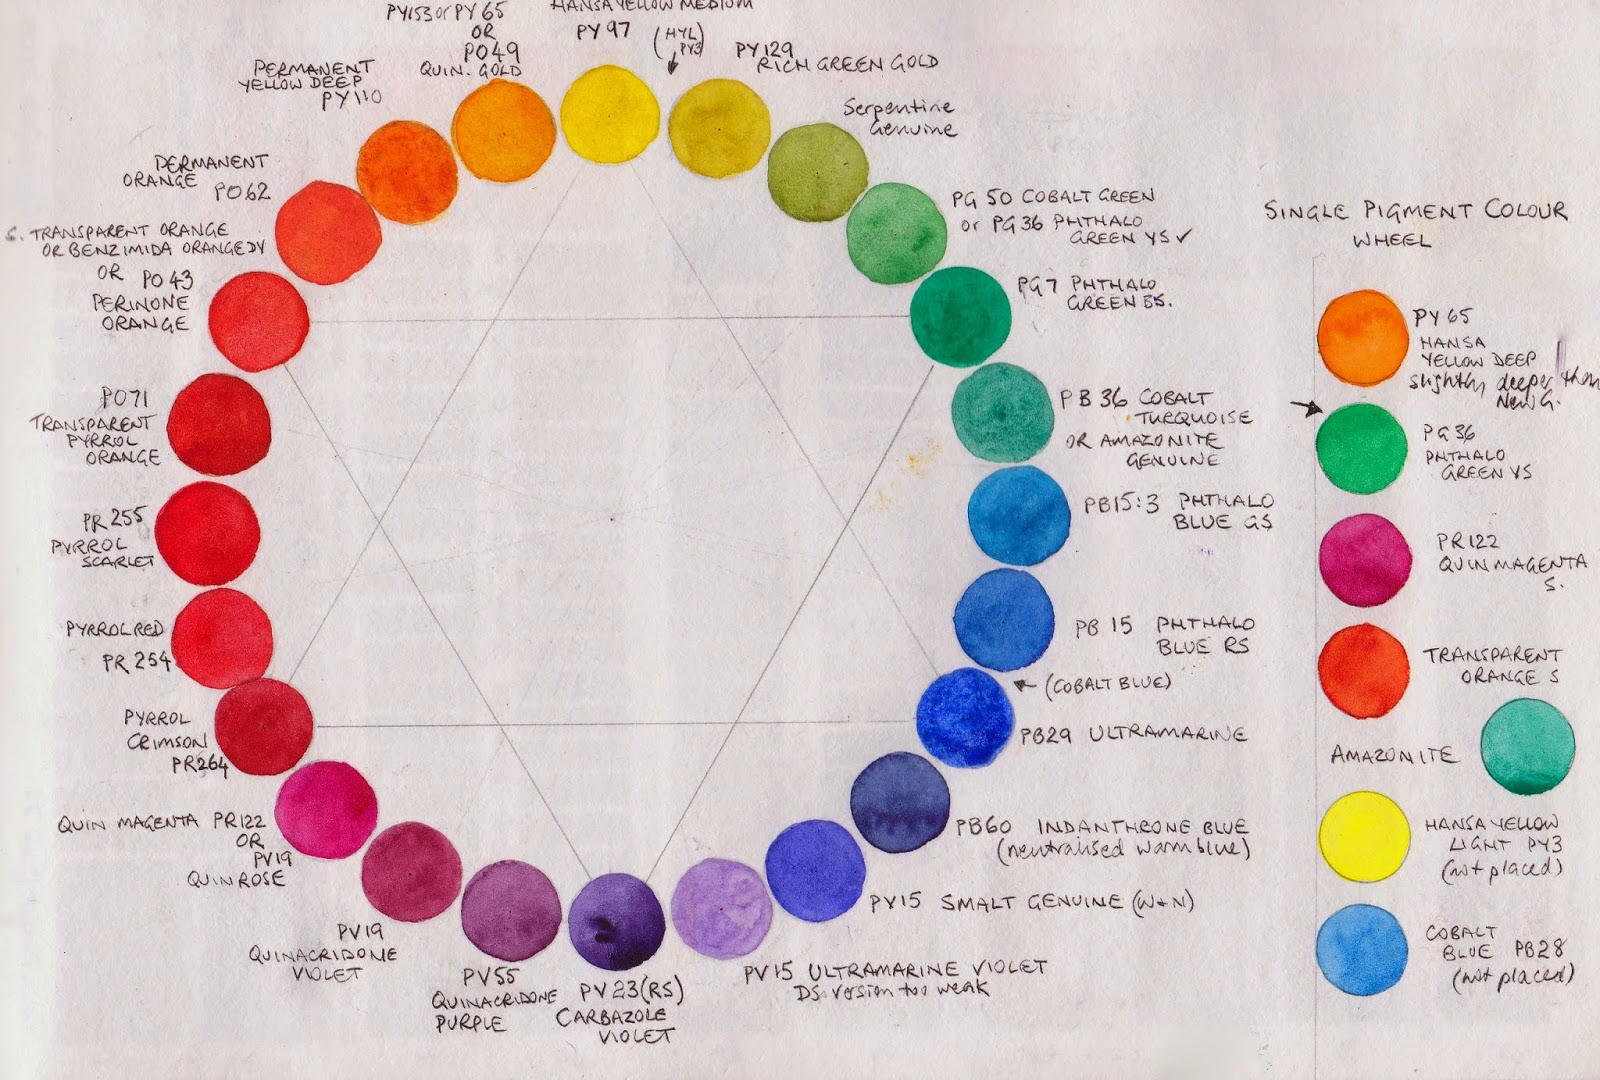 PY153 or PY 65
OR
PO49
QUIN. GOLD
HANSA YELLOW MEDIUM
PY 97
(HYL)
PY3
PY 129
RICH GREEN GOLD
Serpentine
Genuine
PG 50 COBALT GREEN
or PG 36 PHTHALO
GREEN YS ✓
PG7 PHTHALO
GREEN BS.
PB 36 COBALT
TURQUOISE
OR AMAZONITE
GENUINE
PB15:3 PHTHALO
BLUE GS
PB 15 PHTHALO
BLUE RS
(COBALT BLUE)
PB29 ULTRAMARINE
PB60 INDANTHRONE BLUE
(neutralised warm blue)
PV15 SMALT GENUINE (W+N)
PV15 ULTRAMARINE VIOLET
DS version too weak
PV 23 (RS)
CARBAZOLE
VIOLET
PV55
QUINACRIDONE
PURPLE
PV19
QUINACRIDONE
VIOLET
QUIN MAGENTA PR122
OR
PV19
QUIN ROSE
PYRROL
CRIMSON
PR264
PYRROL RED
PR 254
PR 255
PYRROL
SCARLET
PO71
TRANSPARENT
PYRROL
ORANGE
S. TRANSPARENT ORANGE
OR BENZIMIDA ORANGE DY
OR PO 43
PERINONE
ORANGE
PERMANENT
ORANGE PO62
PERMANENT
YELLOW DEEP
PY110
SINGLE PIGMENT COLOUR
WHEEL
PY 65
HANSA
YELLOW DEEP
slightly deeper than
New G.
PG 36
PHTHALO
GREEN YS
PR122
QUIN MAGENTA
S.
TRANSPARENT
ORANGE S
AMAZONITE
HANSA YELLOW
LIGHT PY3
(not placed)
COBALT
BLUE PB28
(not placed)